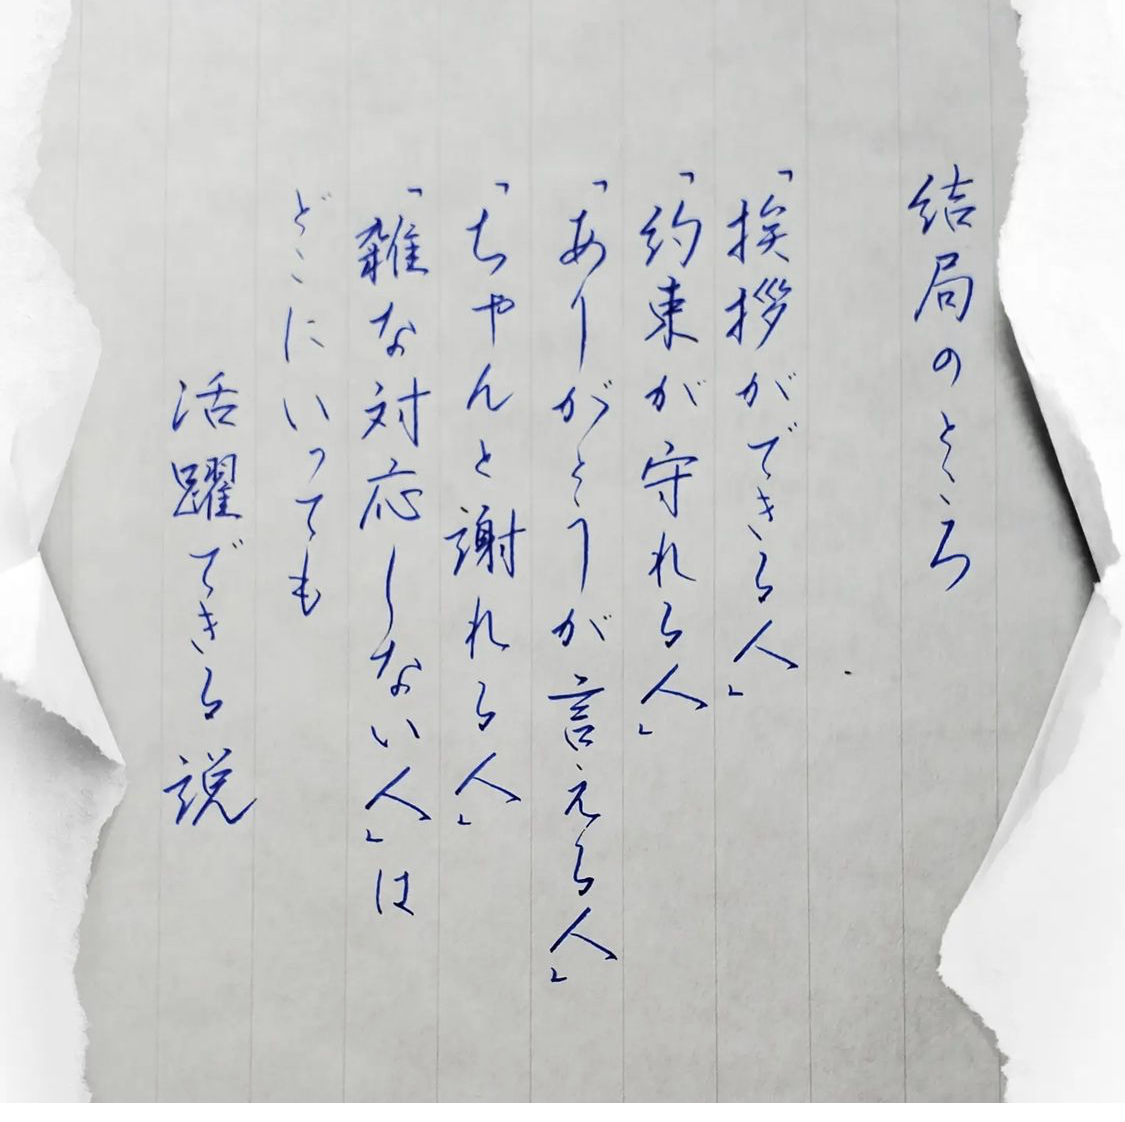 結局のところ
「挨拶ができる人」
「約束が守れる人」
「ありがとうが言える人」
「ちゃんと謝れる人」
「雑な対応しない人」は
どこにいっても
活躍できる説